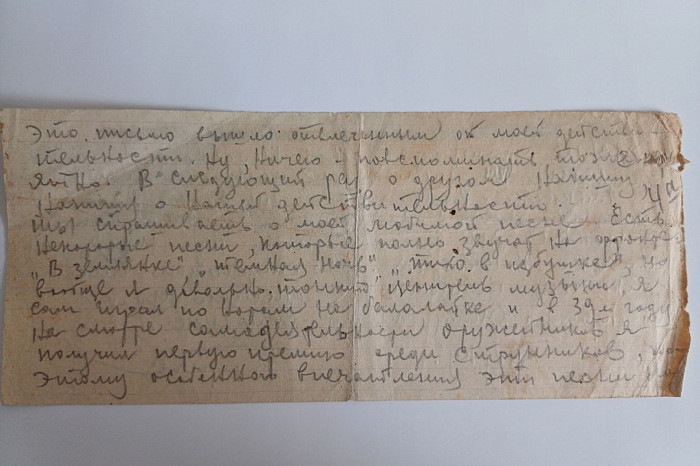 Это письмо вышло отвлеченным от моей действи-
тельности. Ну, ничего – повспоминать тоже
В следующий раз о другом напишу,
напишу о нашей действительности.
Ты спрашиваешь о моей любимой песне. Есть
некоторые песни, которые полно звучат на фронте:
„В землянке", „темная ночь", „тихо в избушке", но
вообще я довольно тонкий ценитель музыки. Я
сам играл по нотам на балалайке и в 39-м году
на смотре самодеятельности оружейников я
получил первую премию среди струнников, по-
этому особенного впечатления эти песни